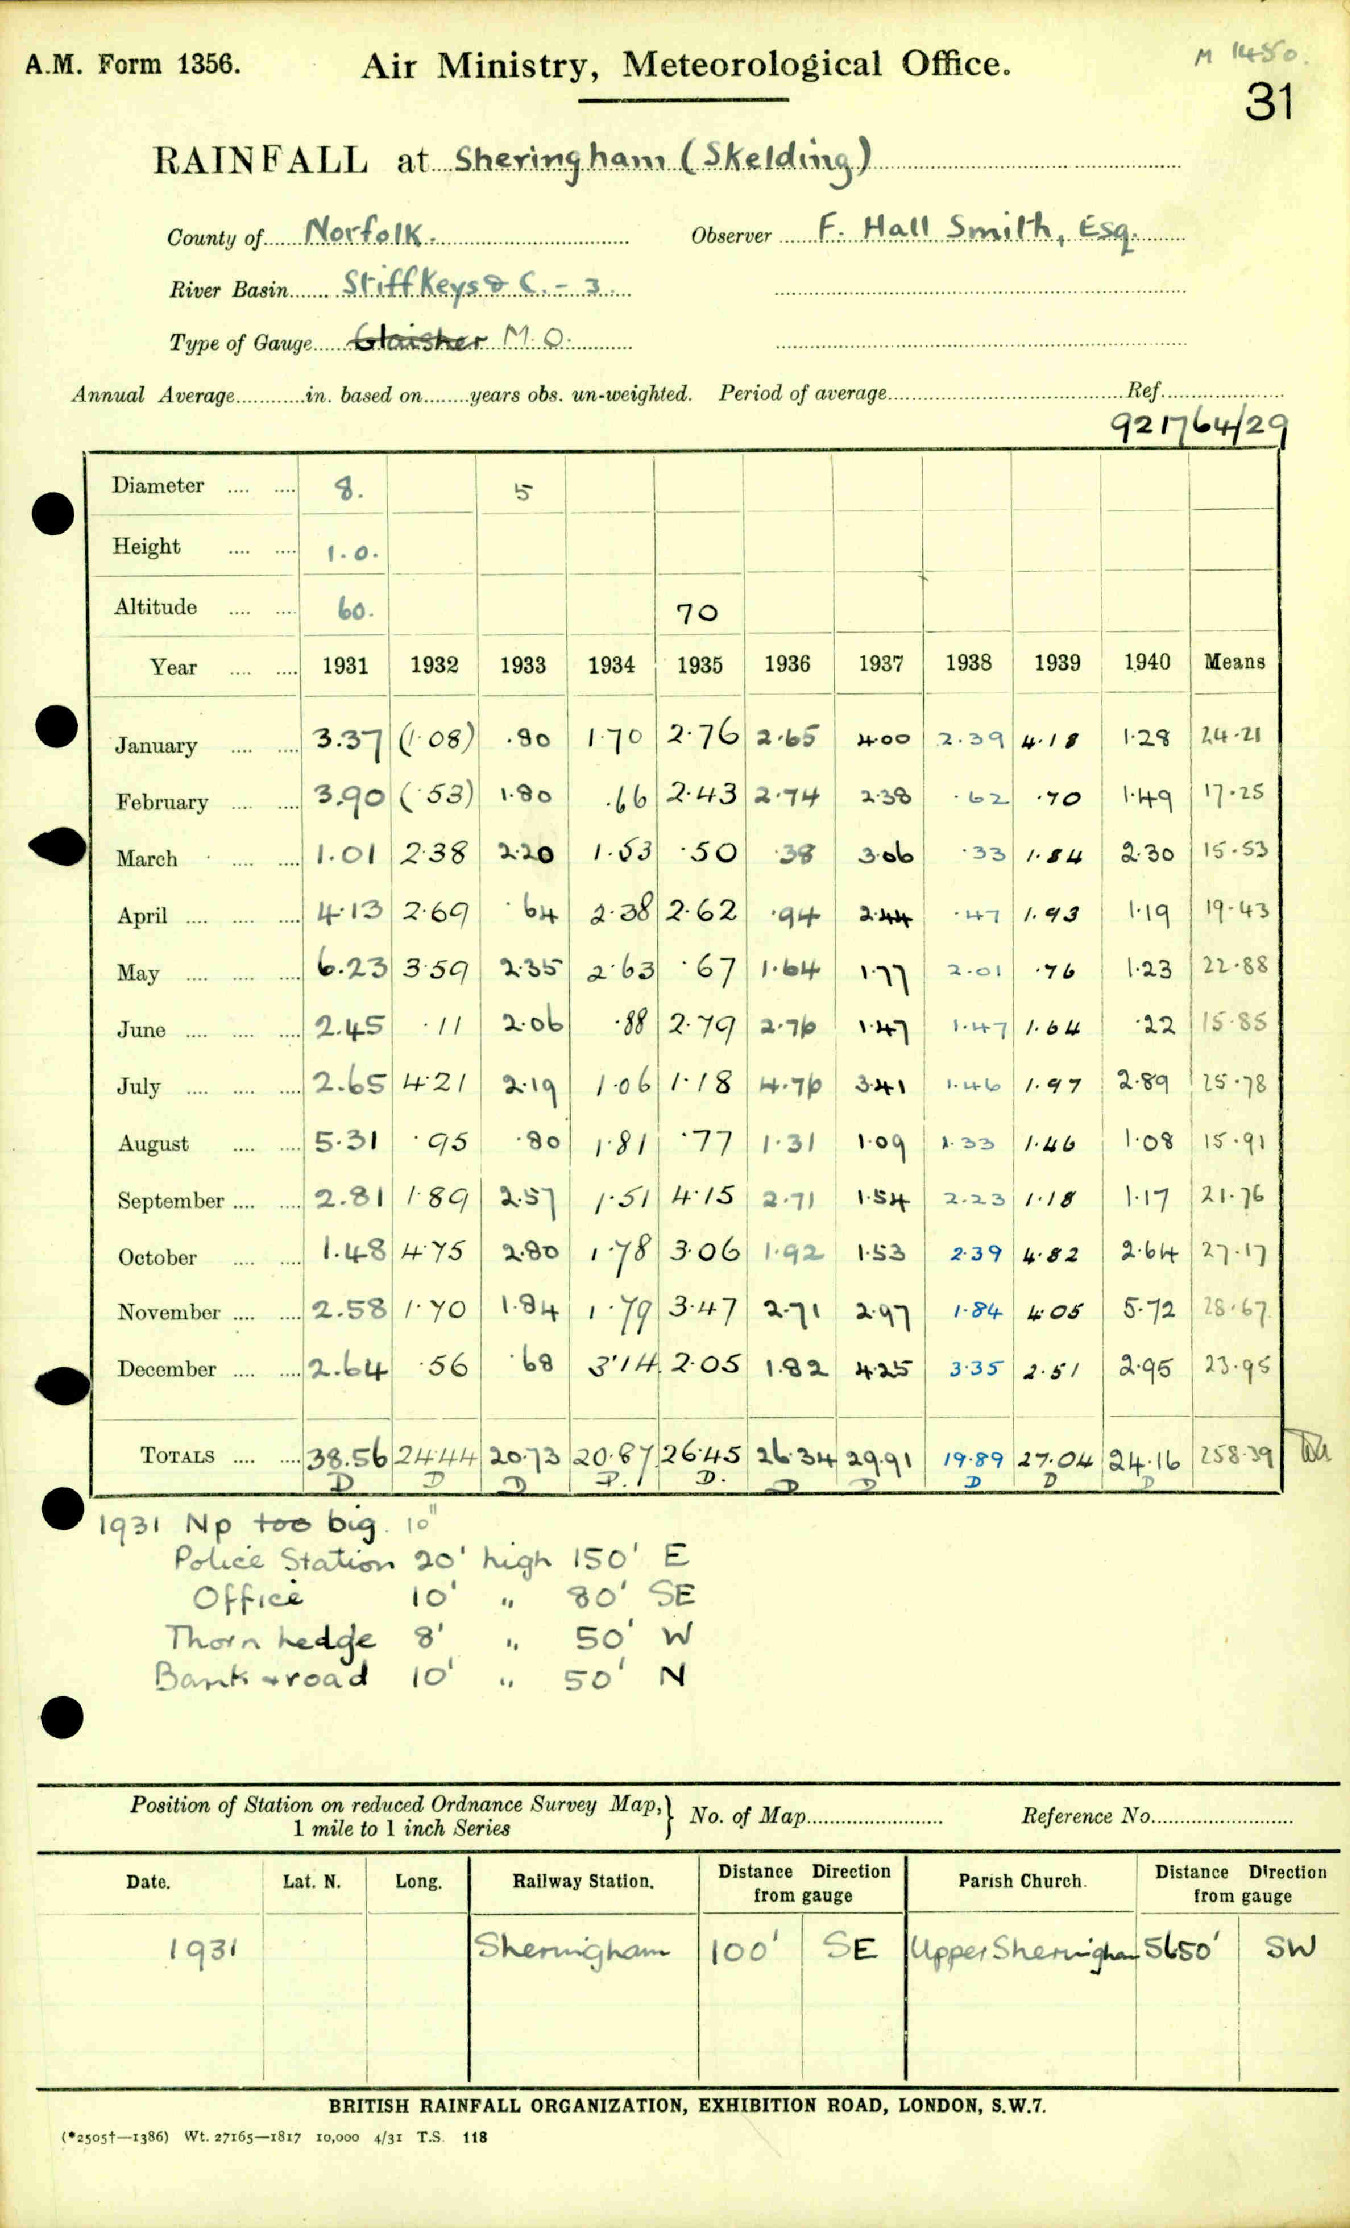 A.M. Form 1356. Air Ministry, Meteorological Office. M 1450.
31
RAINFALL at Sheringham (Skelding)
County of Norfolk. Observer F. Hall Smith, Esq.
River Basin Stiffkey & C. - 3.
Type of Gauge Glaisher M.O.
Annual Average in. based on years obs. un-weighted. Period of average Ref.
921764/29
Diameter 8. 5
Height 1.0.
Altitude 60. 70
Year 1931 1932 1933 1934 1935 1936 1937 1938 1939 1940 Means
January 3.37 (1.08) .80 1.70 2.76 2.65 4.00 2.39 4.18 1.28 24.21
February 3.90 (.53) 1.80 .66 2.43 2.74 2.38 .62 .70 1.49 17.25
March 1.01 2.38 2.20 1.53 .50 .38 3.06 .33 1.84 2.30 15.53
April 4.13 2.69 .64 2.38 2.62 .94 2.44 .47 1.93 1.19 19.43
May 6.23 3.59 2.35 2.63 .67 1.64 1.77 2.01 .76 1.23 22.88
June 2.45 .11 2.06 .88 2.79 2.76 1.47 1.47 1.64 .22 15.85
July 2.65 4.21 2.19 1.06 1.18 4.76 3.41 1.46 1.97 2.89 25.78
August 5.31 .95 .80 1.81 .77 1.31 1.09 1.33 1.46 1.08 15.91
September 2.81 1.89 2.57 1.51 4.15 2.71 1.54 2.23 1.18 1.17 21.76
October 1.48 4.75 2.80 1.78 3.06 1.92 1.53 2.39 4.82 2.64 27.17
November 2.58 1.70 1.84 1.79 3.47 2.71 2.97 1.84 4.05 5.72 28.67
December 2.64 .56 .68 3.14 2.05 1.82 4.25 3.35 2.51 2.95 23.95
TOTALS 38.56 24.44 20.73 20.87 26.45 26.34 29.91 19.89 27.04 24.16 258.39
D D D D. D. D D D D D
1931 Np too big. 10"
Police Station 20' high 150' E
Office 10' " 80' SE
Thorn hedge 8' " 50' W
Bank + road 10' " 50' N
Position of Station on reduced Ordnance Survey Map, 1 mile to 1 inch Series } No. of Map Reference No.
Date. Lat. N. Long. Railway Station. Distance Direction from gauge Parish Church. Distance Direction from gauge
1931 Sheringham 100' SE Upper Sheringham 5650' SW
BRITISH RAINFALL ORGANIZATION, EXHIBITION ROAD, LONDON, S.W.7.
(*2505†—1386) Wt. 27165—1817 10,000 4/31 T.S. 118